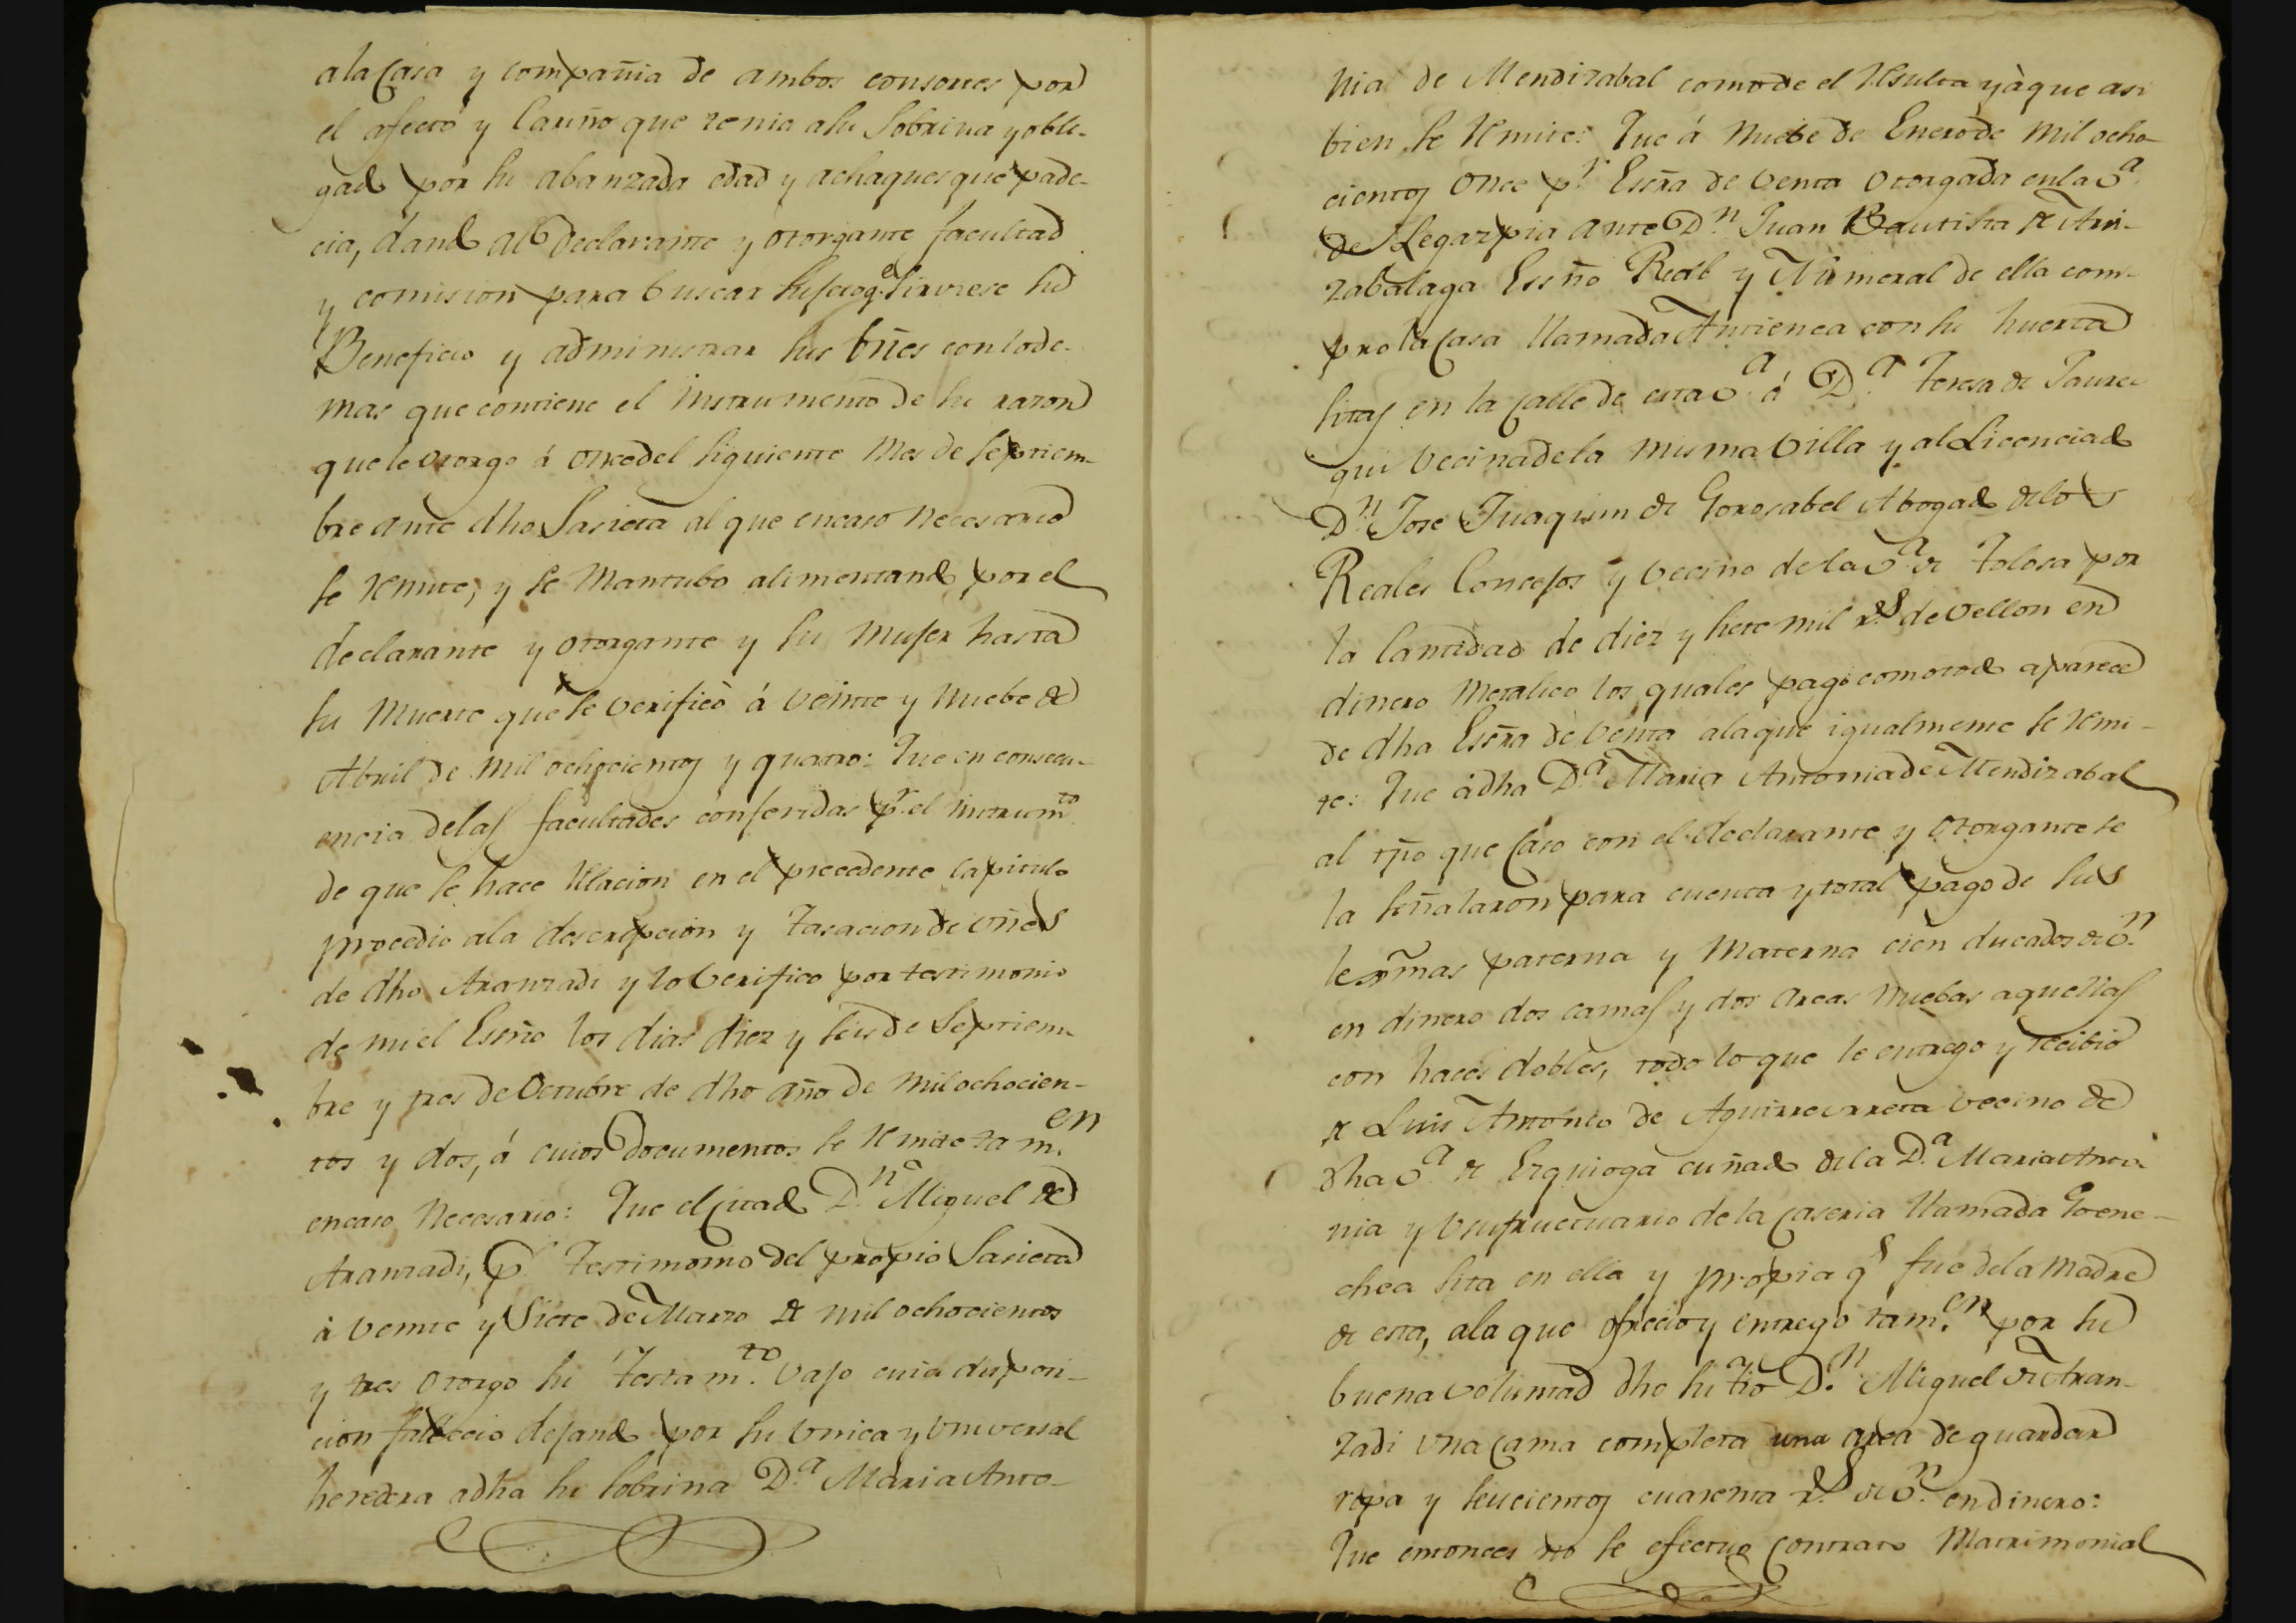 ala Casa y compañia de ambos consortes por
el afecto y Cariño que tenia a su Sobrina y obli-
gado por su abanzada edad y achaques que pade-
cia, dando al Declarante y otorgante facultad
y comision para buscar sugeto q.e sirviese su
Beneficio y administrar sus bñes con lo de-
mas que contiene el instrumento de su razon
que le otorgo á once del siguiente Mes de Septiem-
bre ante dho Sasieta al que en caso necesario
se remite, y se Mantubo alimentando por el
declarante y otorgante y su Muger hasta
su Muerte que se verificò á veinte y Nuebe de
Abril de Mil ochocientos y quatro: Que en consecu-
encia de las facultades conferidas p.r el instrum.to
de que se hace relacion en el precedente capitulo
procedio ala descripcion y tasacion de vñes
de dho Aranzadi y lo Verifico por testimonio
de mi el Esño los dias diez y seis de Septiem-
bre y tres de Octubre de dho año de Mil ochocien-
tos y dos, á cuios Documentos se remite tam.en
en caso Necesario: Que el Citado D.n Miguel de
Aranzadi, p.r Testimonio del propio Sasieta
à veinte y Siete de Marzo de Mil ochocientos
y tres otorgo su Testam.to vajo cuia disposi-
cion fallecio dejando por su Vnica y Vniversal
heredera a dha su Sobrina D.a Maria Anto-
nia de Mendizabal como de el resulta y à que asi
bien se remite: Que á Nuebe de Enero de Mil ocho-
cientos Once p.r Escrã de Venta Otorgada en la V.a
de Legazpia ante D.n Juan Bautista de Arri-
zabalaga Essño Real y Numeral de ella com-
pro la Casa llamada Antienea con su huerta
sitas en la Calle de esta V.a á D.a Teresa de Jaure-
gui Vecina de la misma Villa y al Licenciado
D.n Jose Juaquin de Gorosabel Abogado de los
Reales Concejos y Vecino de la V.a de Tolosa por
la Cantidad de diez y siete mil r.s de Vellon en
dinero Metalico los quales pagò como todo aparece
de dha Escrã de Venta ala que igualmente se remi-
te: Que á dha D.a Maria Antonia de Mendizabal
al tpõ que Caso con el declarante y Otorgante se
la señalaron para cuenta y total pago de sus
lexmas paterna y Materna cien ducados de V.n
en dinero dos camas y dos arcas Nuebas aquellas
con haces dobles, todo lo que le entrego y recibio
de Luis Antonio de Aguirreurreta vecino de
dha V.a de Ezquioga cuñado de la D.a Maria Anto-
nia y Vsufructuario de la Caseria llamada Goene-
chea sita en ella y propia q.e fue de la Madre
de esta, ala que ofrecio y entregò tam.en por su
buena voluntad dho su tio D.n Miguel de Aran-
zadi Vna Cama completa una arca de guardar
ropa y seiscientos cuarenta r.s de V.n en dinero:
Que entonces no se efectuo Contrato Matrimonial